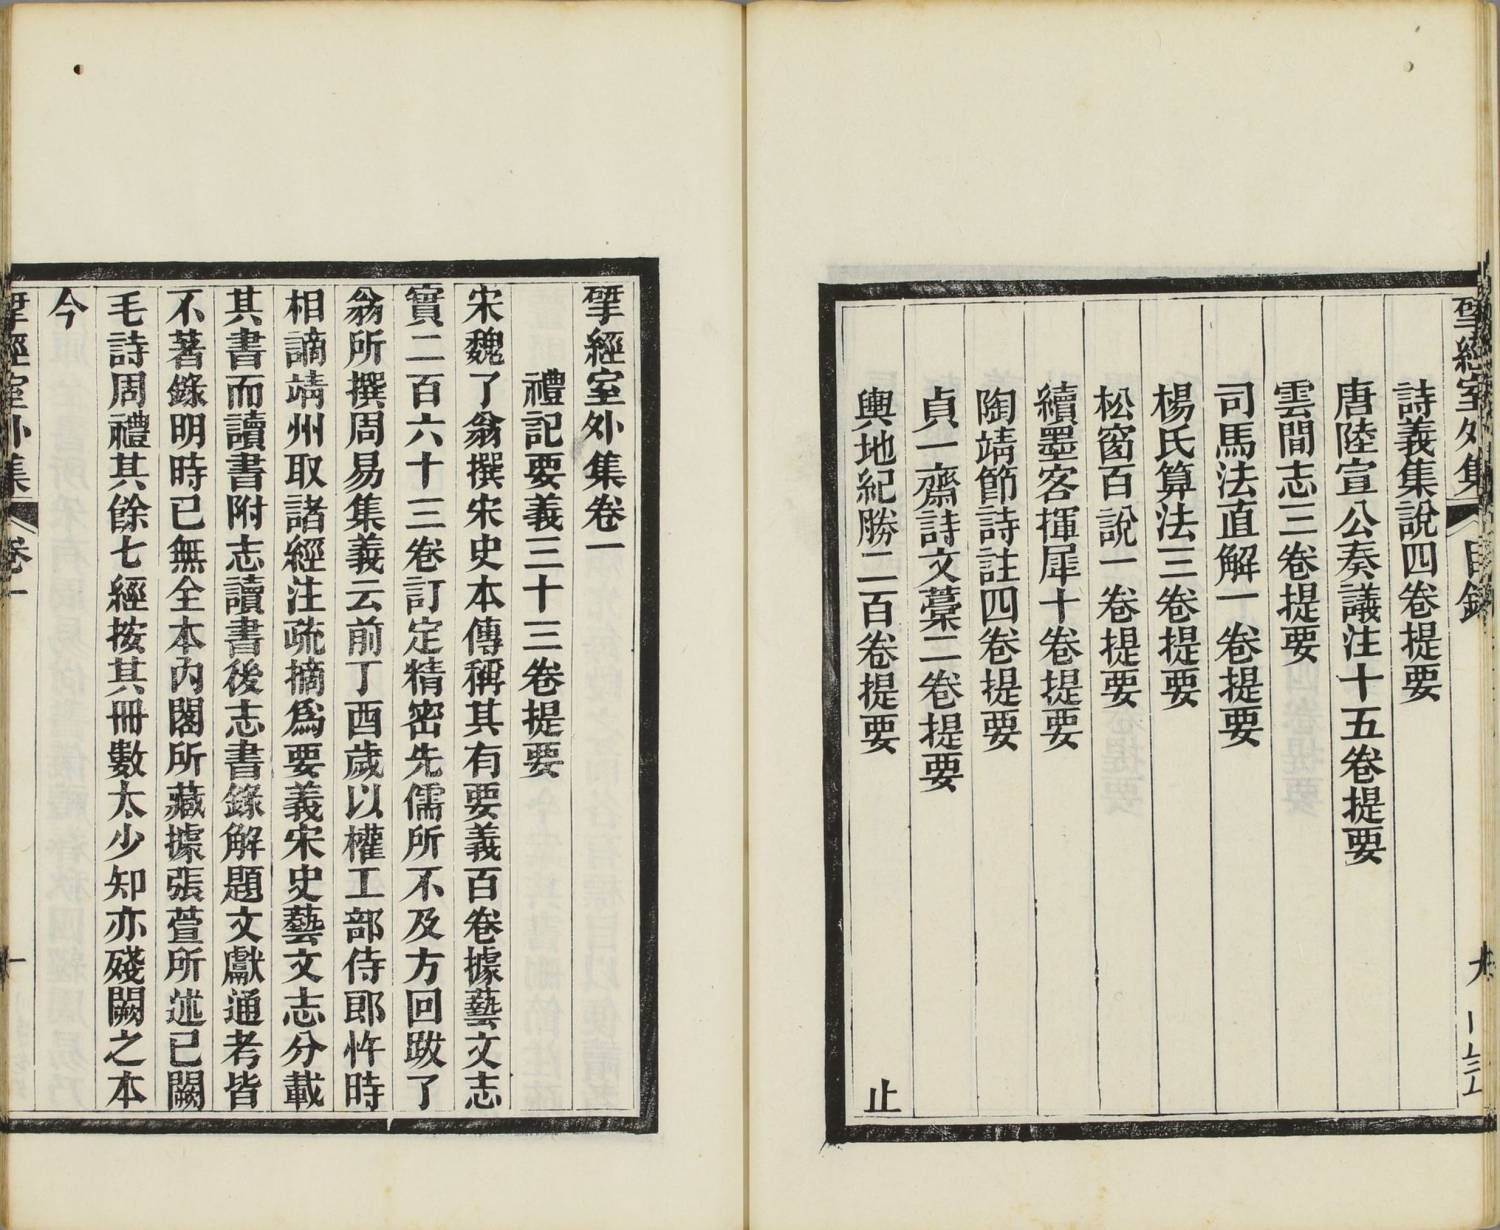 揅經室外集 目錄
詩義集說四卷提要
唐陸宣公奏議注十五卷提要
雲間志三卷提要
司馬法直解一卷提要
楊氏算法三卷提要
松窗百說一卷提要
續墨客揮犀十卷提要
陶靖節詩註四卷提要
貞一齋詩文藁二卷提要
輿地紀勝二百卷提要
止
揅經室外集卷一
禮記要義三十三卷提要
宋魏了翁撰宋史本傳稱其有要義百卷據藝文志
實二百六十三卷訂定精密先儒所不及方回跋了
翁所撰周易集義云前丁酉歲以權工部侍郎忤時
相謫靖州取諸經注疏摘爲要義宋史藝文志分載
其書而讀書附志讀書後志書錄解題文獻通考皆
不著錄明時已無全本內閣所藏據張萱所述已闕
毛詩周禮其餘七經按其冊數太少知亦殘闕之本
今
揅經室外集 卷一 一